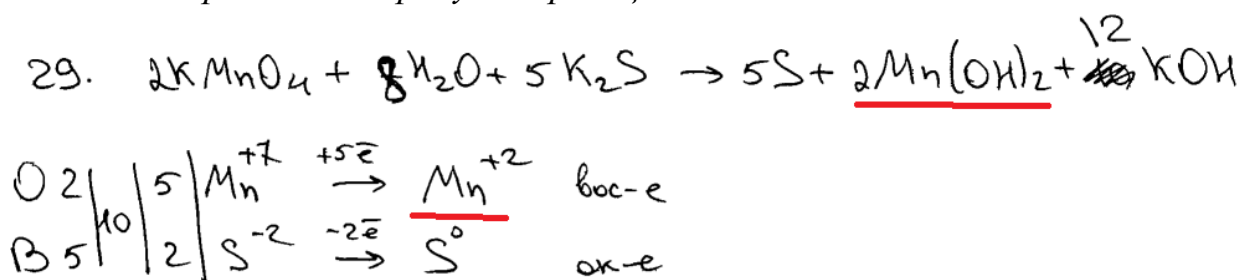 29. 2KMnO₄ + 8H₂O + 5K₂S → 5S + 2Mn(OH)₂ + 12 KOH
O 2 | 10 | 5 | Mn⁺⁷ +5ē → Mn⁺² вос-е
В 5 | 2 | S⁻² -2ē → S⁰ ок-е